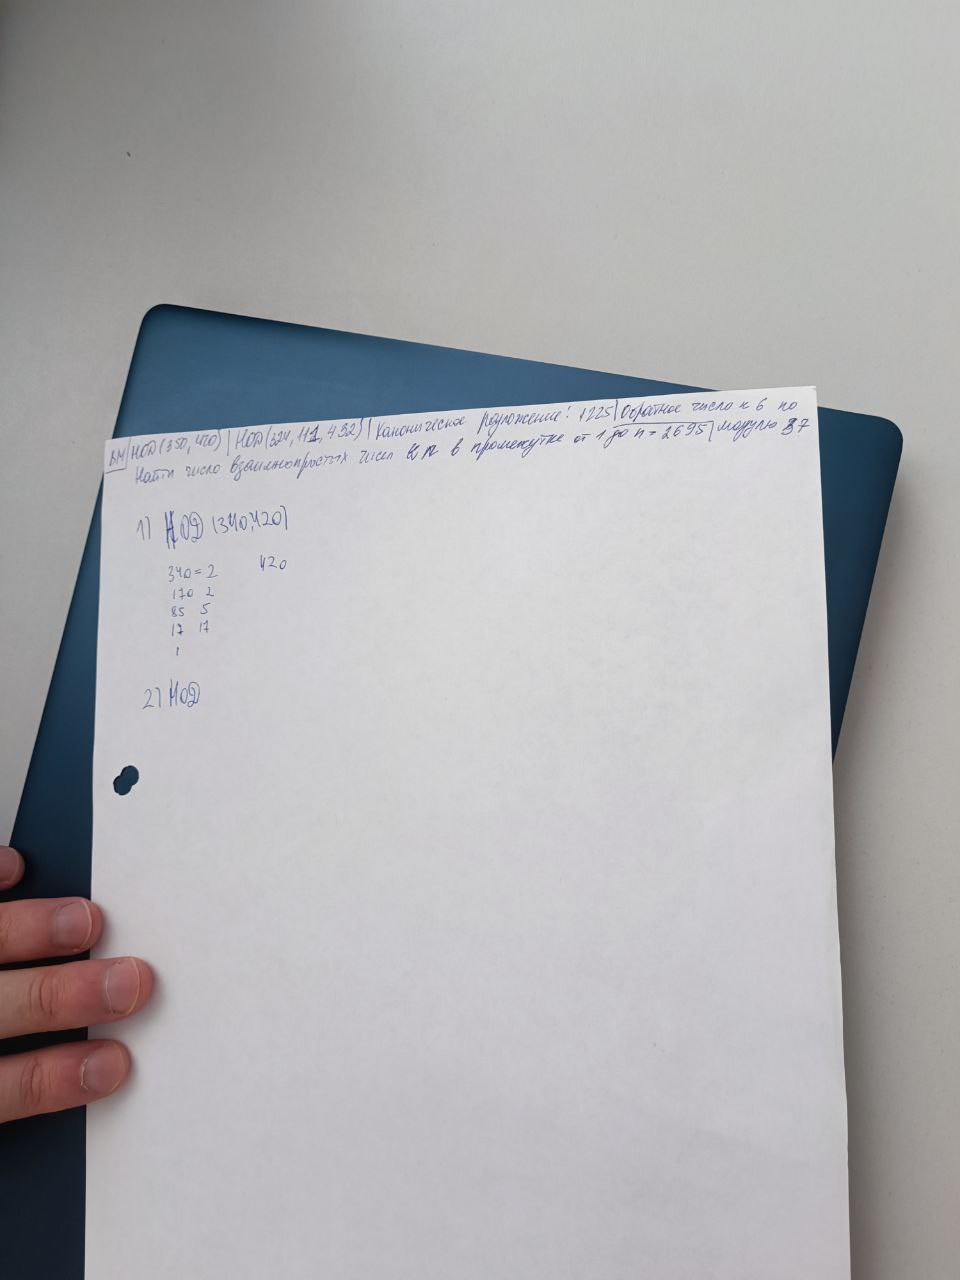 НОД(350,420) | НОД(324,111,432) | Каноническое разложение: 1225 | Обратное число к 6 по
Найти число взаимнопростых чисел в промежутке от 1 до n = 2695 | модулю 37
1) НОД (340,420)
340 = 2 420
170 2
85 5
17 17
1
2) НОД